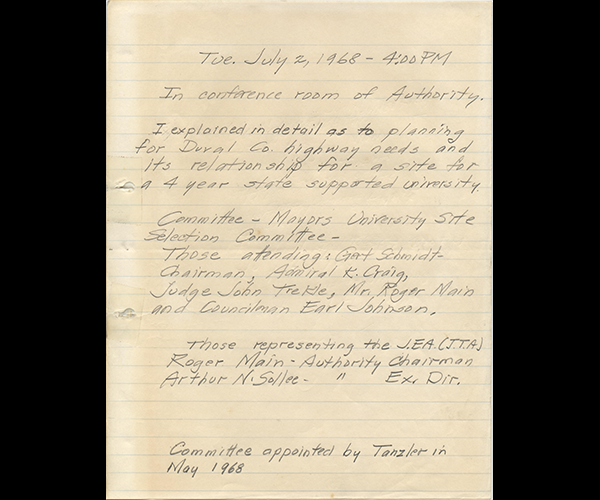 Tue. July 2, 1968 - 4:00 PM
In conference room of Authority.
I explained in detail as to planning
for Duval Co. highway needs and
its relationship for a site for
a 4 year state supported university.
Committee - Mayors University Site
Selection Committee -
Those attending: Gert Schmidt-
Chairman, Admiral K. Craig,
Judge John Trekle, Mr. Roger Main
and Councilman Earl Johnson.
Those representing the J.E.A. (J.T.A)
Roger Main - Authority Chairman
Arthur N. Sollee - " Ex. Dir.
Committee appointed by Tanzler in
May 1968